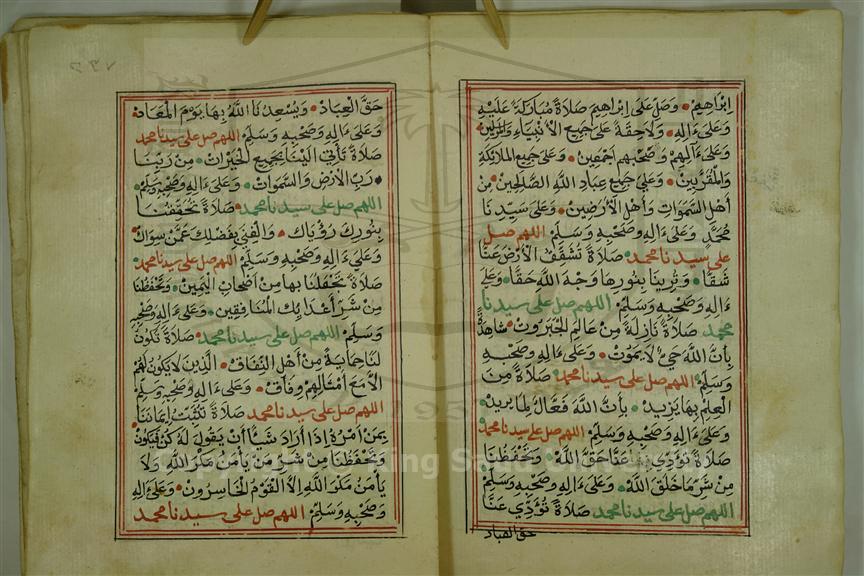 ابْرَاهِيمَ وَصَلِّ عَلَى ابْرَاهِيمَ صَلَاةً مُبَارَكَةً عَلَيْهِ
وَعَلَى ءَالِهِ وَلَاحِقَةً عَلَى جَمِيعِ الْأَنْبِيَاءِ وَالْمُرْسَلِينَ
وَعَلَى ءَالِهِمْ وَصَحْبِهِمْ أَجْمَعِينَ وَعَلَى جَمِيعِ الْمَلَائِكَةِ
وَالْمُقَرَّبِينَ وَعَلَى جَمِيعِ عِبَادِ اللَّهِ الصَّالِحِينَ مِنْ
أَهْلِ السَّمَوَاتِ وَأَهْلِ الْأَرْضِينَ وَعَلَى سَيِّدِنَا
مُحَمَّدٍ وَعَلَى ءَالِهِ وَصَحْبِهِ وَسَلِّمْ اللهم صل
على سيدنا محمد صَلَاةً تُشَقِّقُ الْأَرْضَ عَنَّا
شَقًّا وَتُرِينَا بِنُورِهَا وَجْهَ اللَّهِ حَقًّا وَعَلَى
ءَالِهِ وَصَحْبِهِ وَسَلِّمْ اللهم صل على سيدنا
محمد صَلَاةً نَازِلَةً مِنْ عَالَمِ الْجَبَرُوتِ شَاهِدَةً
بِأَنَّ اللَّهَ حَيٌّ لَا يَمُوتُ وَعَلَى ءَالِهِ وَصَحْبِهِ
وَسَلِّمْ اللهم صل على سيدنا محمد صَلَاةً مِنَ
الْعِلْمِ بِهَا يَزِيدُ بِأَنَّ اللَّهَ فَعَّالٌ لِمَا يُرِيدُ
وَعَلَى ءَالِهِ وَصَحْبِهِ وَسَلِّمْ اللهم صل على سيدنا محمد
صَلَاةً تُؤَدِّي بِهَا عَنَّا حَقَّ اللَّهِ وَتَحْفَظُنَا
مِنْ شَرِّ مَا خَلَقَ اللَّهُ وَعَلَى ءَالِهِ وَصَحْبِهِ وَسَلِّمْ
اللهم صل على سيدنا محمد صَلَاةً تُؤَدِّي عَنَّا
حق العباد
حَقَّ الْعِبَادِ وَيُسْعِدُنَا اللَّهُ بِهَا يَوْمَ الْمَعَادِ
وَعَلَى ءَالِهِ وَصَحْبِهِ وَسَلِّمْ اللهم صل على سيدنا محمد
صَلَاةً تَأْتِي الَيْنَا بِجَمِيعِ الْخَيْرَاتِ مِنْ رَبِّنَا
رَبِّ الْأَرْضِ وَالسَّمَوَاتِ وَعَلَى ءَالِهِ وَصَحْبِهِ وَسَلِّمْ
اللهم صل على سيدنا محمد صَلَاةً تُحَقِّقُنَا
بِنُورِكَ رُؤْيَاكَ وَالْغِنَى بِفَضْلِكَ عَمَّنْ سِوَاكَ
وَعَلَى ءَالِهِ وَصَحْبِهِ وَسَلِّمْ اللهم صل على سيدنا محمد
صَلَاةً تَجْعَلُنَا بِهَا مِنْ أَصْحَابِ الْيَمِينِ وَتَحْفَظُنَا
مِنْ شَرِّ أَعْدَائِكَ الْمُنَافِقِينَ وَعَلَى ءَالِهِ وَصَحْبِهِ
وَسَلِّمْ اللهم صل على سيدنا محمد صَلَاةً تَكُونُ
لَنَا حِمَايَةً مِنْ أَهْلِ النِّفَاقِ الَّذِينَ لَا يَكُونُ لَهُمْ
الَّا مَعَ أَمْثَالِهِمْ وِفَاقٌ وَعَلَى ءَالِهِ وَصَحْبِهِ وَسَلِّمْ
اللهم صل على سيدنا محمد صَلَاةً تُثَبِّتُ إِيمَانَنَا
بِمَنْ أَمْرُهُ إِذَا أَرَادَ شَيْأً أَنْ يَقُولَ لَهُ كُنْ فَيَكُونُ
وَتَحْفَظُنَا مِنْ شَرِّ مَنْ يَأْمَنُ مَكْرَ اللَّهِ وَلَا
يَأْمَنُ مَكْرَ اللَّهِ إِلَّا الْقَوْمُ الْخَاسِرُونَ وَعَلَى ءَالِهِ
وَصَحْبِهِ وَسَلِّمْ اللهم صل على سيدنا محمد